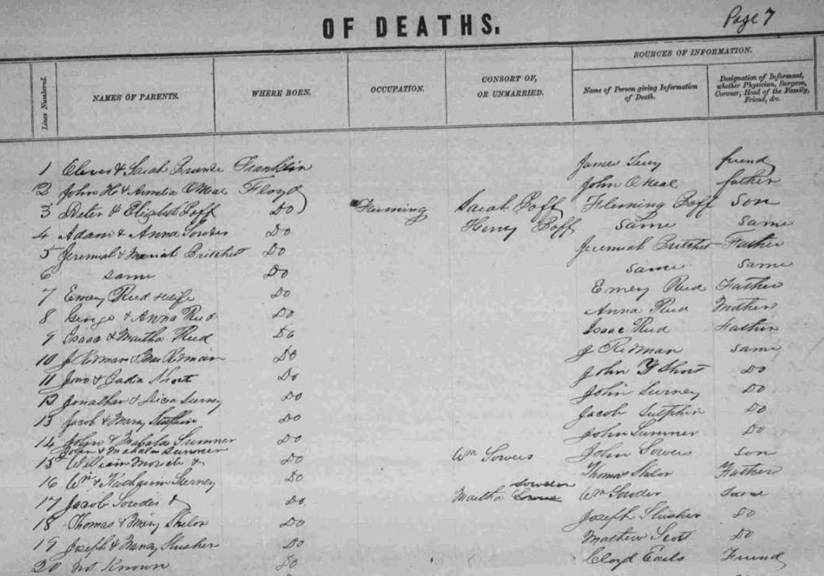 Page 7
OF DEATHS.
Lines Numbered. NAMES OF PARENTS. WHERE BORN. OCCUPATION. CONSORT OF, OR UNMARRIED. SOURCES OF INFORMATION.
Name of Person giving Information of Death. Designation of Informant, whether Physician, Surgeon, Coroner, Head of the Family, Friend, &c.
1 & Sarah Franklin James friend
2 John H & Amelia O Neal Floyd John O Neal father
3 Peter & Elizabet Poff Do Farming Sarah Poff Fleming Poff Son
4 Adam & Anna Sowder Do Henry Poff Same Same
5 Jeremiah & Mariah Pritchet Do Jeremiah Pritchet Father
6 Same Do same same
7 Emey Reed & wife Do Emey Reed Father
8 George & Anna Reed Do Anna Reed Mother
9 Isaac & Martha Reed Do Isaac Reed Father
10 J Ridman & Ridman Do J Ridman Same
11 Jno & Short Do John Y Short Do
12 Jonathan & Surney Do John Surney Do
13 Jacob & Mary Do Jacob Sutphin Do
14 John & Mahala Sumner Do John Sumner Do
John & Mahala Sumner
15 William & Do Wm Sowers John Sowers son
16 Wm & Surney Do Thomas Shelor Father
17 Jacob Sowder & Do Martha Sowder Wm Sowder Same
18 Thomas & Mary Shelor Do Joseph Slusher Do
19 Joseph & Nancy Slusher Do Mathew Scott Do
20 Not Known Do Cloyd Earls Friend